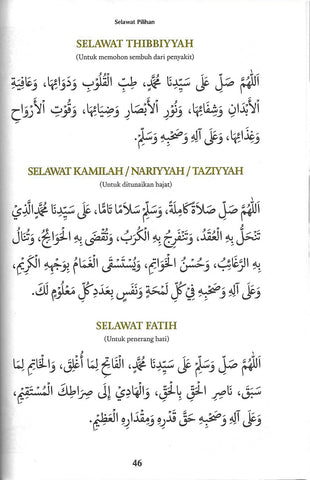 Selawat Pilihan
SELAWAT THIBBIYYAH
(Untuk memohon sembuh dari penyakit)
اَللّٰهُمَّ صَلِّ عَلَى سَيِّدِنَا مُحَمَّدٍ، طِبِّ الْقُلُوْبِ وَدَوَائِهَا، وَعَافِيَةِ
الْأَبْدَانِ وَشِفَائِهَا، وَنُوْرِ الْأَبْصَارِ وَضِيَائِهَا، وَقُوْتِ الْأَرْوَاحِ
وَغِذَائِهَا، وَعَلَى آلِهِ وَصَحْبِهِ وَسَلِّمْ.
SELAWAT KAMILAH / NARIYYAH / TAZIYYAH
(Untuk ditunaikan hajat)
اَللّٰهُمَّ صَلِّ صَلَاةً كَامِلَةً، وَسَلِّمْ سَلَامًا تَامًّا، عَلَى سَيِّدِنَا مُحَمَّدٍ الَّذِيْ
تَنْحَلُّ بِهِ الْعُقَدُ، وَتَنْفَرِجُ بِهِ الْكُرَبُ، وَتُقْضَى بِهِ الْحَوَائِجُ، وَتُنَالُ
بِهِ الرَّغَائِبُ، وَحُسْنُ الْخَوَاتِيْمِ، وَيُسْتَسْقَى الْغَمَامُ بِوَجْهِهِ الْكَرِيْمِ،
وَعَلَى آلِهِ وَصَحْبِهِ فِيْ كُلِّ لَمْحَةٍ وَنَفَسٍ بِعَدَدِ كُلِّ مَعْلُوْمٍ لَكَ.
SELAWAT FATIH
(Untuk penerang hati)
اَللّٰهُمَّ صَلِّ وَسَلِّمْ عَلَى سَيِّدِنَا مُحَمَّدٍ، الْفَاتِحِ لِمَا أُغْلِقَ، وَالْخَاتِمِ لِمَا
سَبَقَ، نَاصِرِ الْحَقِّ بِالْحَقِّ، وَالْهَادِيْ إِلَى صِرَاطِكَ الْمُسْتَقِيْمِ،
وَعَلَى آلِهِ وَصَحْبِهِ حَقَّ قَدْرِهِ وَمِقْدَارِهِ الْعَظِيْمِ.
46